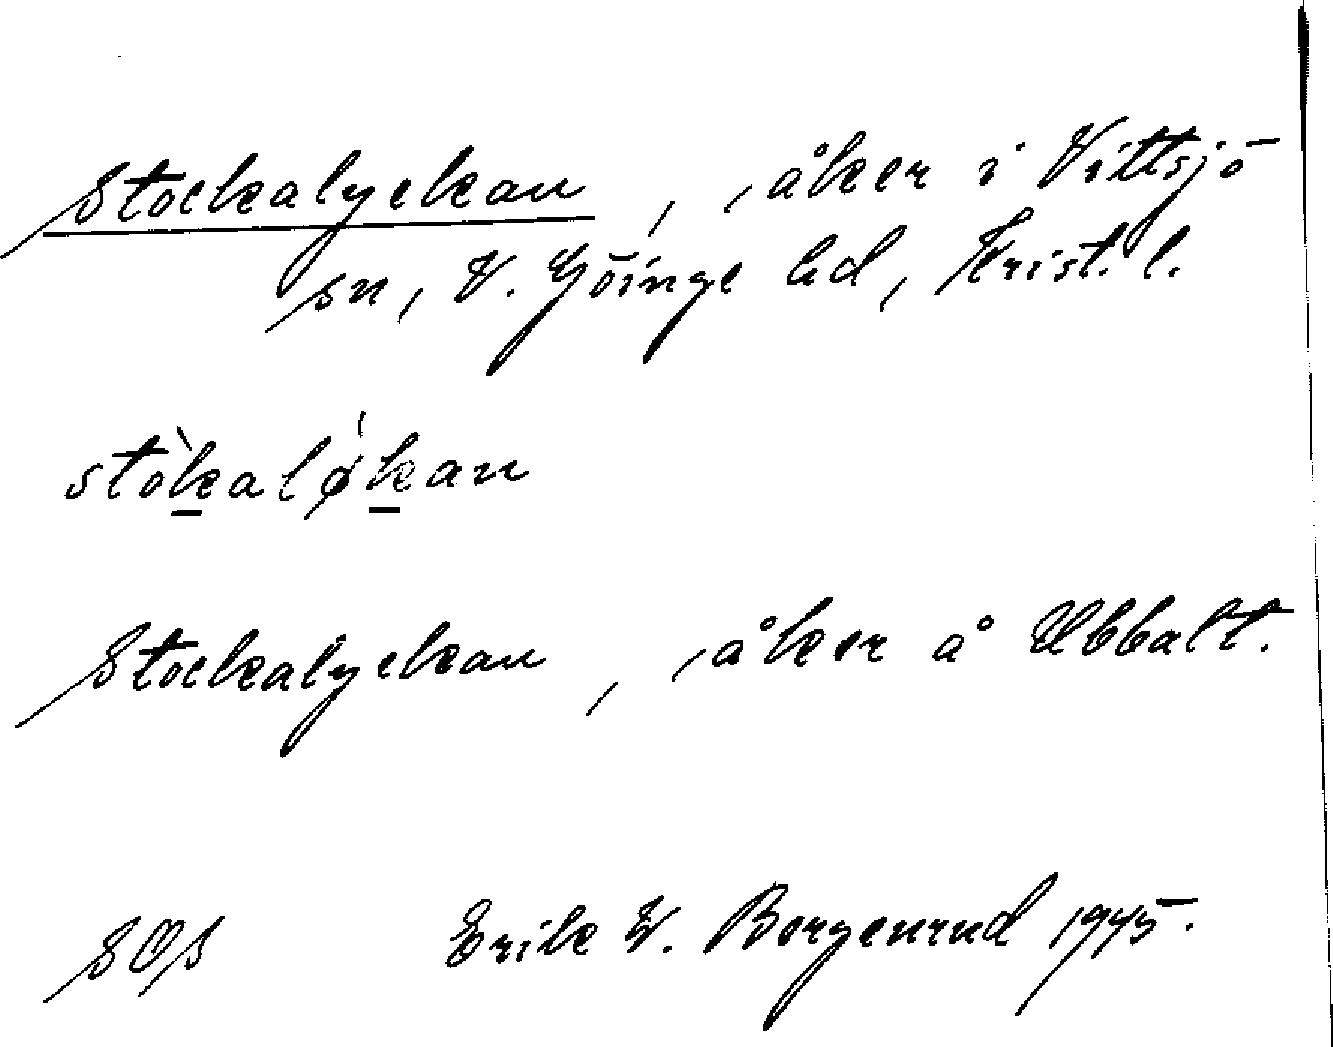 Stockalyckan, åker i Vittsjö
sn, V. Göinge hd, Krist. l.
stòkaløkan
Stockalyckan, åker å Ubbalt.
SOS Erik W. Bergenrud 1945.